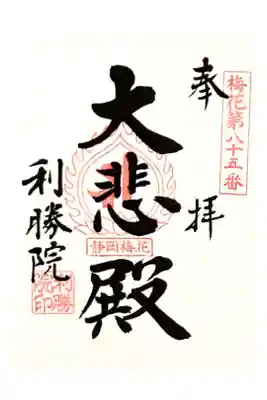 奉拝
梅花第八十五番
大悲殿
静岡梅花
利勝院
利勝
院印